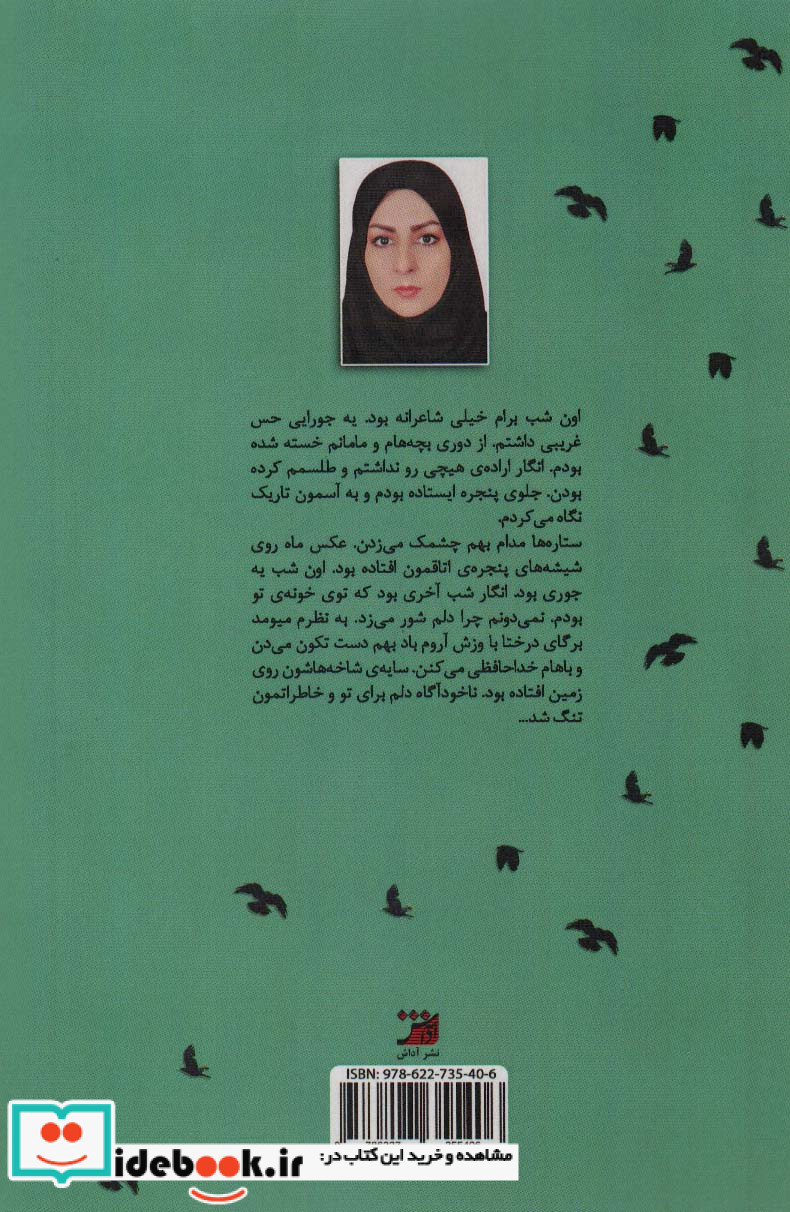 اون شب برام خیلی شاعرانه بود. یه جورایی حس
غریبی داشتم. از دوری بچه‌هام و مامانم خسته شده
بودم. انگار اراده‌ی هیچی رو نداشتم و طلسمم کرده
بودن. جلوی پنجره ایستاده بودم و به آسمون تاریک
نگاه می‌کردم.
ستاره‌ها مدام بهم چشمک می‌زدن. عکس ماه روی
شیشه‌های پنجره‌ی اتاقمون افتاده بود. اون شب یه
جوری بود. انگار شب آخری بود که توی خونه‌ی تو
بودم. نمی‌دونم چرا دلم شور می‌زد. به نظرم میومد
برگای درختا با وزش آروم باد بهم دست تکون می‌دن
و باهام خداحافظی می‌کنن. سایه‌ی شاخه‌هاشون روی
زمین افتاده بود. ناخودآگاه دلم برای تو و خاطراتمون
تنگ شد...
آداش
نشر آداش
ISBN: 978-622-735-40-6
مشاهده و خرید این کتاب در:
idebook.ir